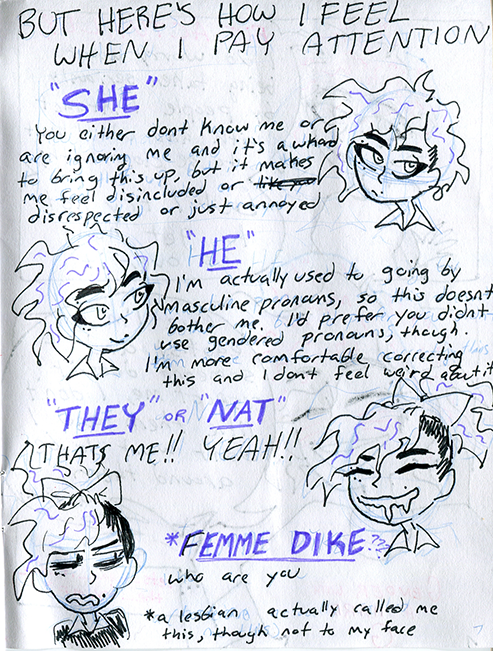 BUT HERE'S HOW I FEEL
WHEN I PAY ATTENTION
"SHE"
You either dont know me or
are ignoring me and it's awkard
to bring this up, but it makes
me feel disincluded or
disrespected or just annoyed
"HE"
I'm actually used to going by
masculine pronouns, so this doesnt
bother me. I'd prefer you didn't
use gendered pronouns, though.
I'm more comfortable correcting
this and I dont feel weird about it
"THEY" OR "NAT"
THATS ME!! YEAH!!
*FEMME DIKE??
who are you
*a lesbian actually called me
this, though not to my face